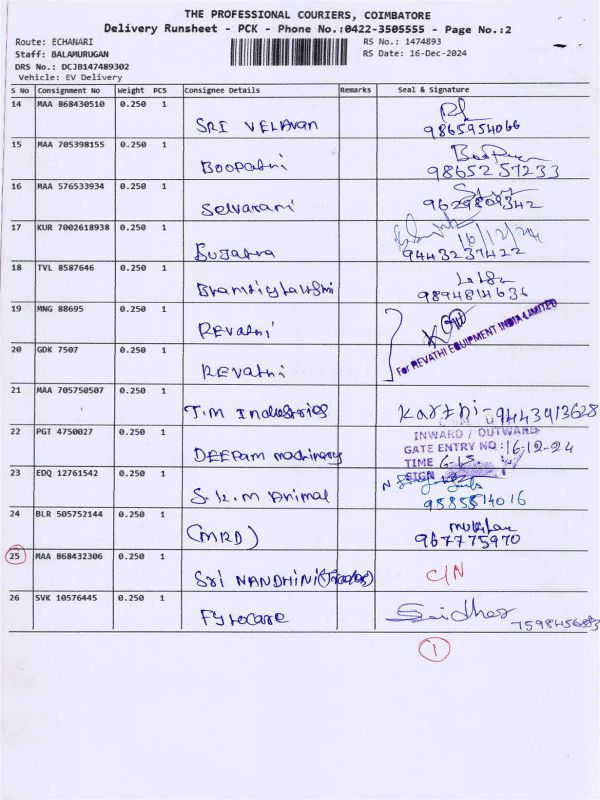 THE PROFESSIONAL COURIERS, COIMBATORE
Delivery Runsheet - PCK - Phone No.:0422-3505555 - Page No.:2
Route: ECHANARI
Staff: BALAMURUGAN
DRS No.: DCJB147489302
Vehicle: EV Delivery
RS No.: 1474893
RS Date: 16-Dec-2024
S No Consignment No Weight PCS Consignee Details Remarks Seal & Signature
14 MAA 868430510 0.250 1
SRI VELAVAN 9865954066
15 MAA 705398155 0.250 1
Boopathi 9865257233
16 MAA 576533934 0.250 1
Selvarani 9629809342
17 KUR 7002618938 0.250 1
16/12/24
9443237422
18 TVL 8587646 0.250 1
9894814636
19 MNG 88695 0.250 1
REvathi
For REVATHI EQUIPMENT INDIA LIMITED
20 GDK 7507 0.250 1
REvathi
21 MAA 705750507 0.250 1
T.M Industries Karthi - 9443913628
22 PGT 4750027 0.250 1
DEEPam machinery
INWARD / OUTWARD
GATE ENTRY NO: 16-12-24
TIME 6.15
SIGN
23 EDQ 12761542 0.250 1
S.K.M Animal 9585514016
24 BLR 505752144 0.250 1
(MRD) 967775970
25 MAA 868432306 0.250 1
Sri NANDHINI (Traders) C/N
26 SVK 10576445 0.250 1
Fytocare Sridhar
1